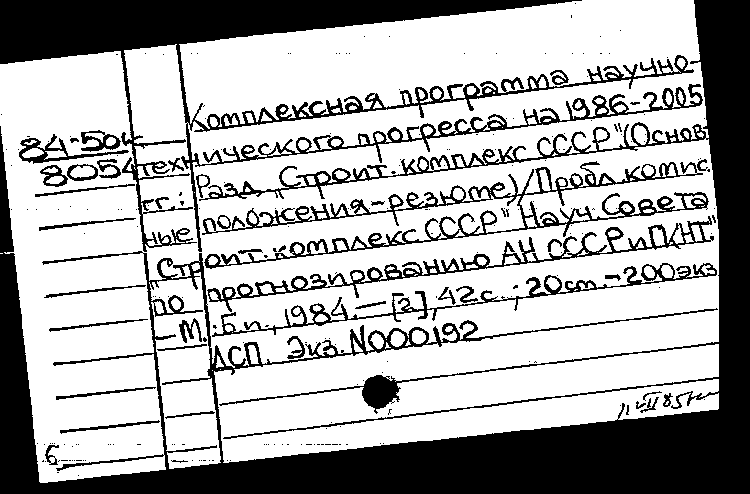 Комплексная программа научно-
84-50к
8054
технического прогресса на 1986-2005
гг.: Разд. „Строит. комплекс СССР" (Основ-
ные положения-резюме)/Пробл. комис.
„Строит. комплекс СССР" Науч. Совета
по прогнозированию АН СССР и ГКНТ."
—М.: Б.и., 1984.—[2], 42с.; 20см.—200экз
ДСП. Экз. N000192
6